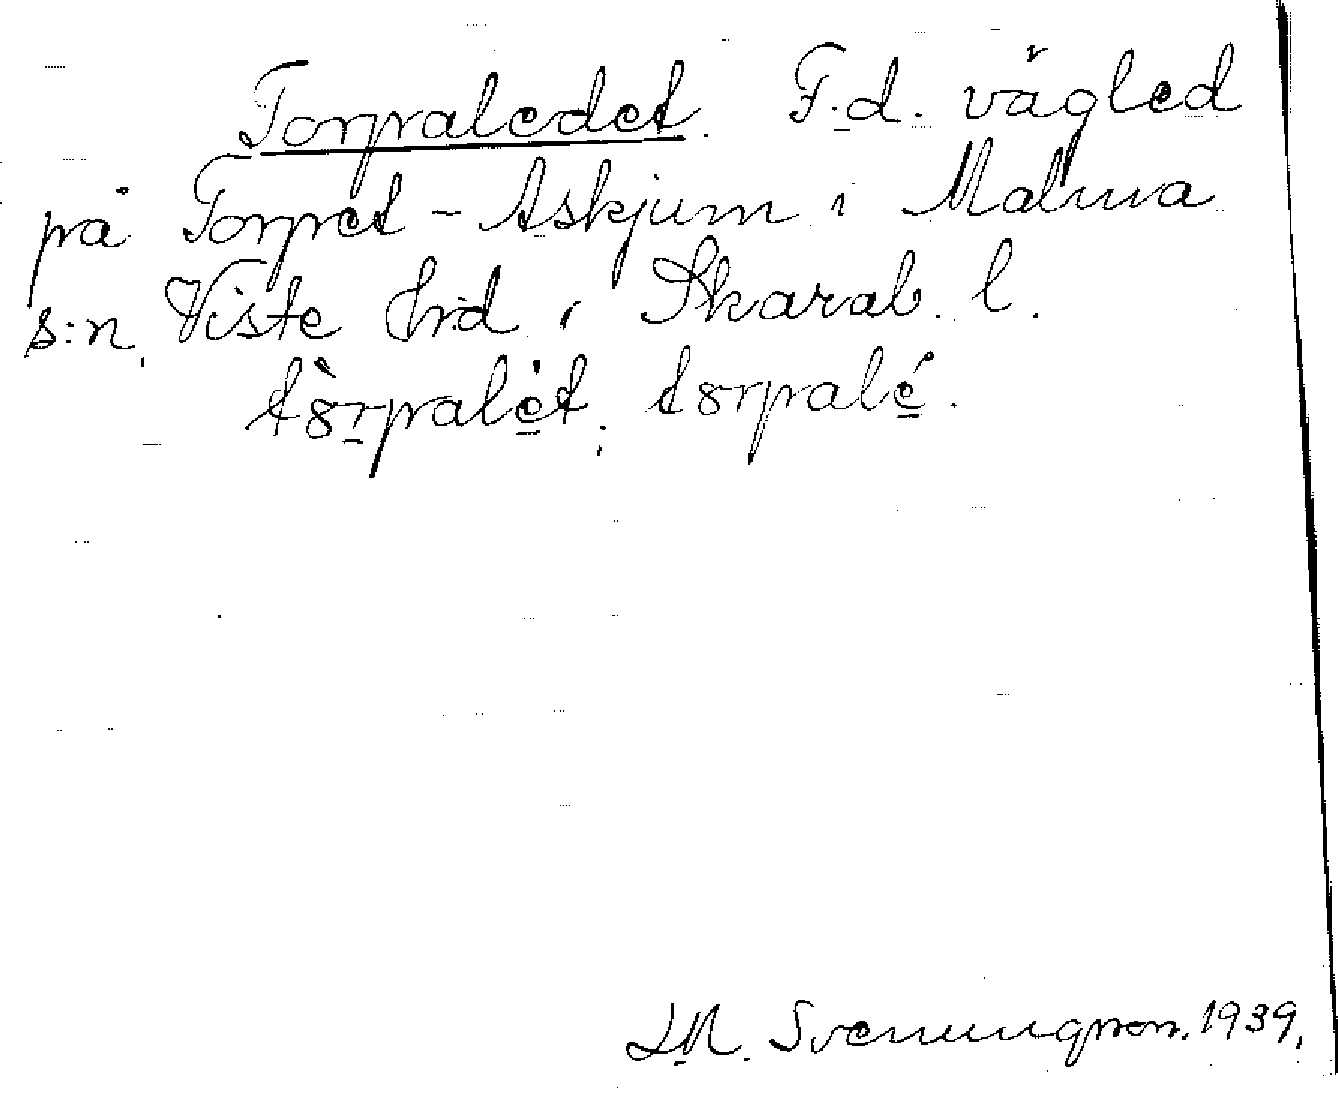 Torpaledet. F.d. vägled
på Torpet - Askjum i Malma
s:n, Viste hrd i Skarab. l.
tȣ̀rpalét, tȣrpalé.
Svenungsson. 1939.